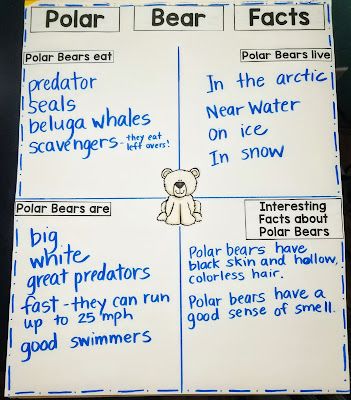 Polar Bear Facts
Polar Bears eat
predator
seals
beluga whales
scavengers - they eat
left overs!
Polar Bears live
In the arctic
Near Water
on ice
In snow
Polar Bears are
big
white
great predators
fast - they can run
up to 25 mph
good swimmers
Interesting
Facts about
Polar Bears
Polar bears have
black skin and hollow,
colorless hair.
Polar bears have a
good sense of smell.